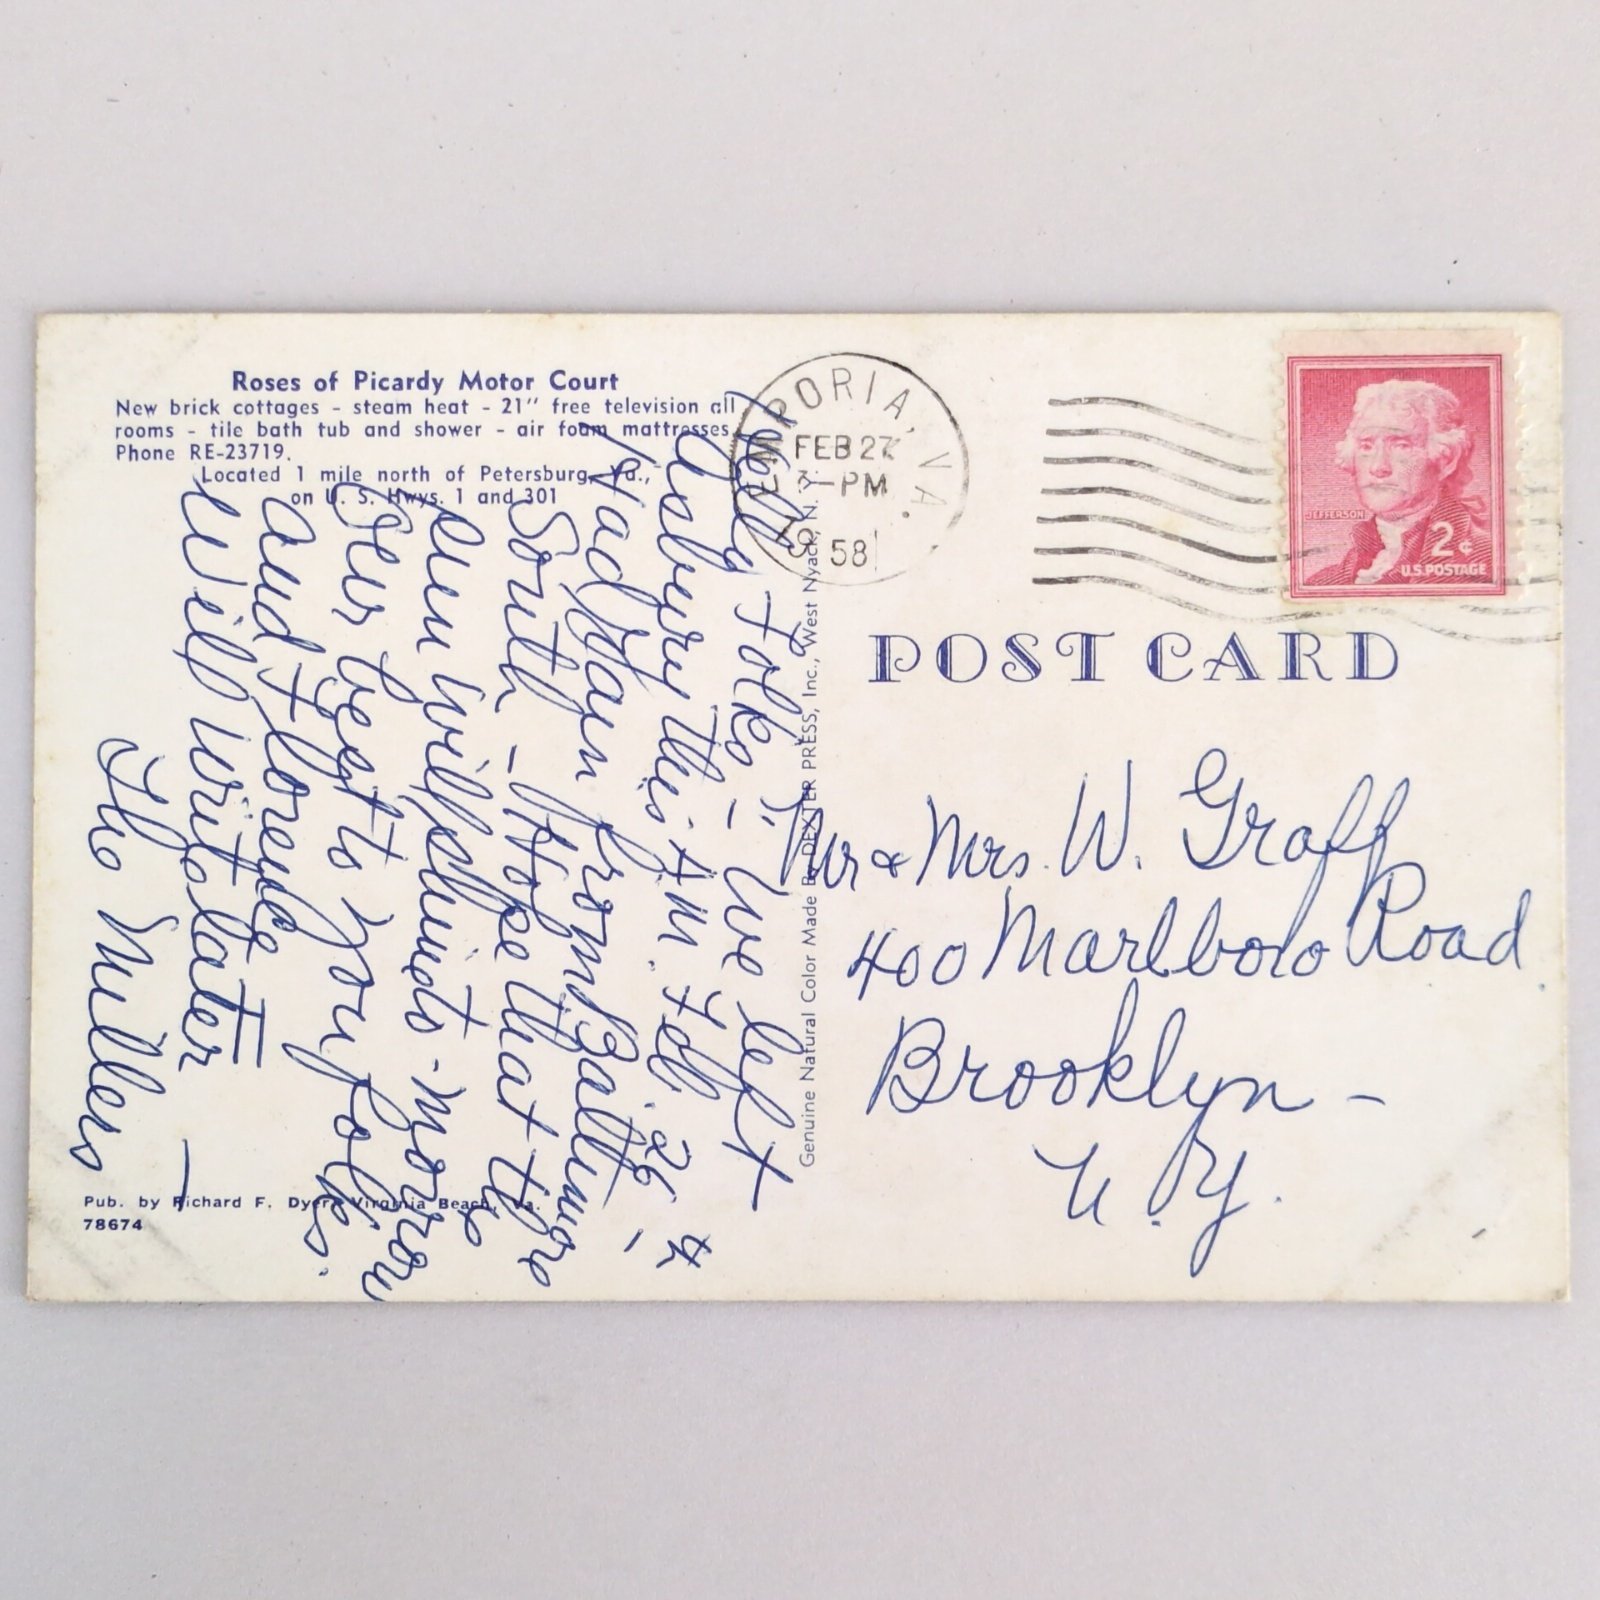 Roses of Picardy Motor Court
New brick cottages - steam heat - 21" free television all
rooms - tile bath tub and shower - air foam mattresses.
Phone RE-23719.
Located 1 mile north of Petersburg, Va.,
on U. S. Hwys. 1 and 301
Hello Folks, - We left
Asbury this A.M. Feb. 26 - &
Had Rain from Baltimore
South - Hope that the
Sun will shine to-morrow
Our best to your folks.
and Florence
Will write later
The Millers -
Pub. by Richard F. Dyer, Virginia Beach, Va.
78674
Genuine Natural Color Made By DEXTER PRESS, Inc., West Nyack, N. Y.
EMPORIA, VA.
FEB 27
3-PM
58
JEFFERSON
2¢
U.S. POSTAGE
POST CARD
Mr & Mrs. W. Graff
400 Marlboro Road
Brooklyn -
N.Y.